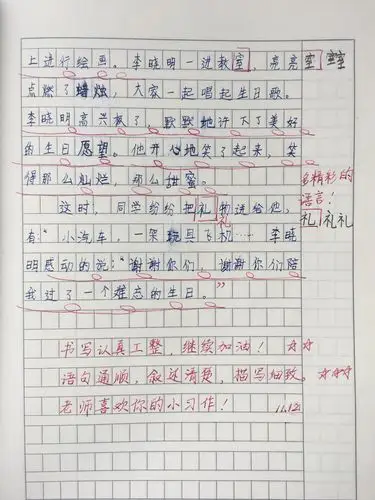 上进行绘画。李晓明一进教室，亮亮 室 室室
点燃了蜡烛，大家一起唱起生日歌。
李晓明高兴极了，默默地许下了美好
的生日愿望。他开心地笑了起来，笑
得那么灿烂，那么甜蜜。
精彩的
语言！
这时，同学纷纷把礼物送给他，
礼 礼 礼礼
有：“小汽车，一架玩具飞机……李晓
明感动的说：“谢谢你们，谢谢你们陪
我过了一个难忘的生日。”
书写认真工整，继续加油！
语句通顺，叙述清楚，描写细致。
老师喜欢你的小习作！ 11.12